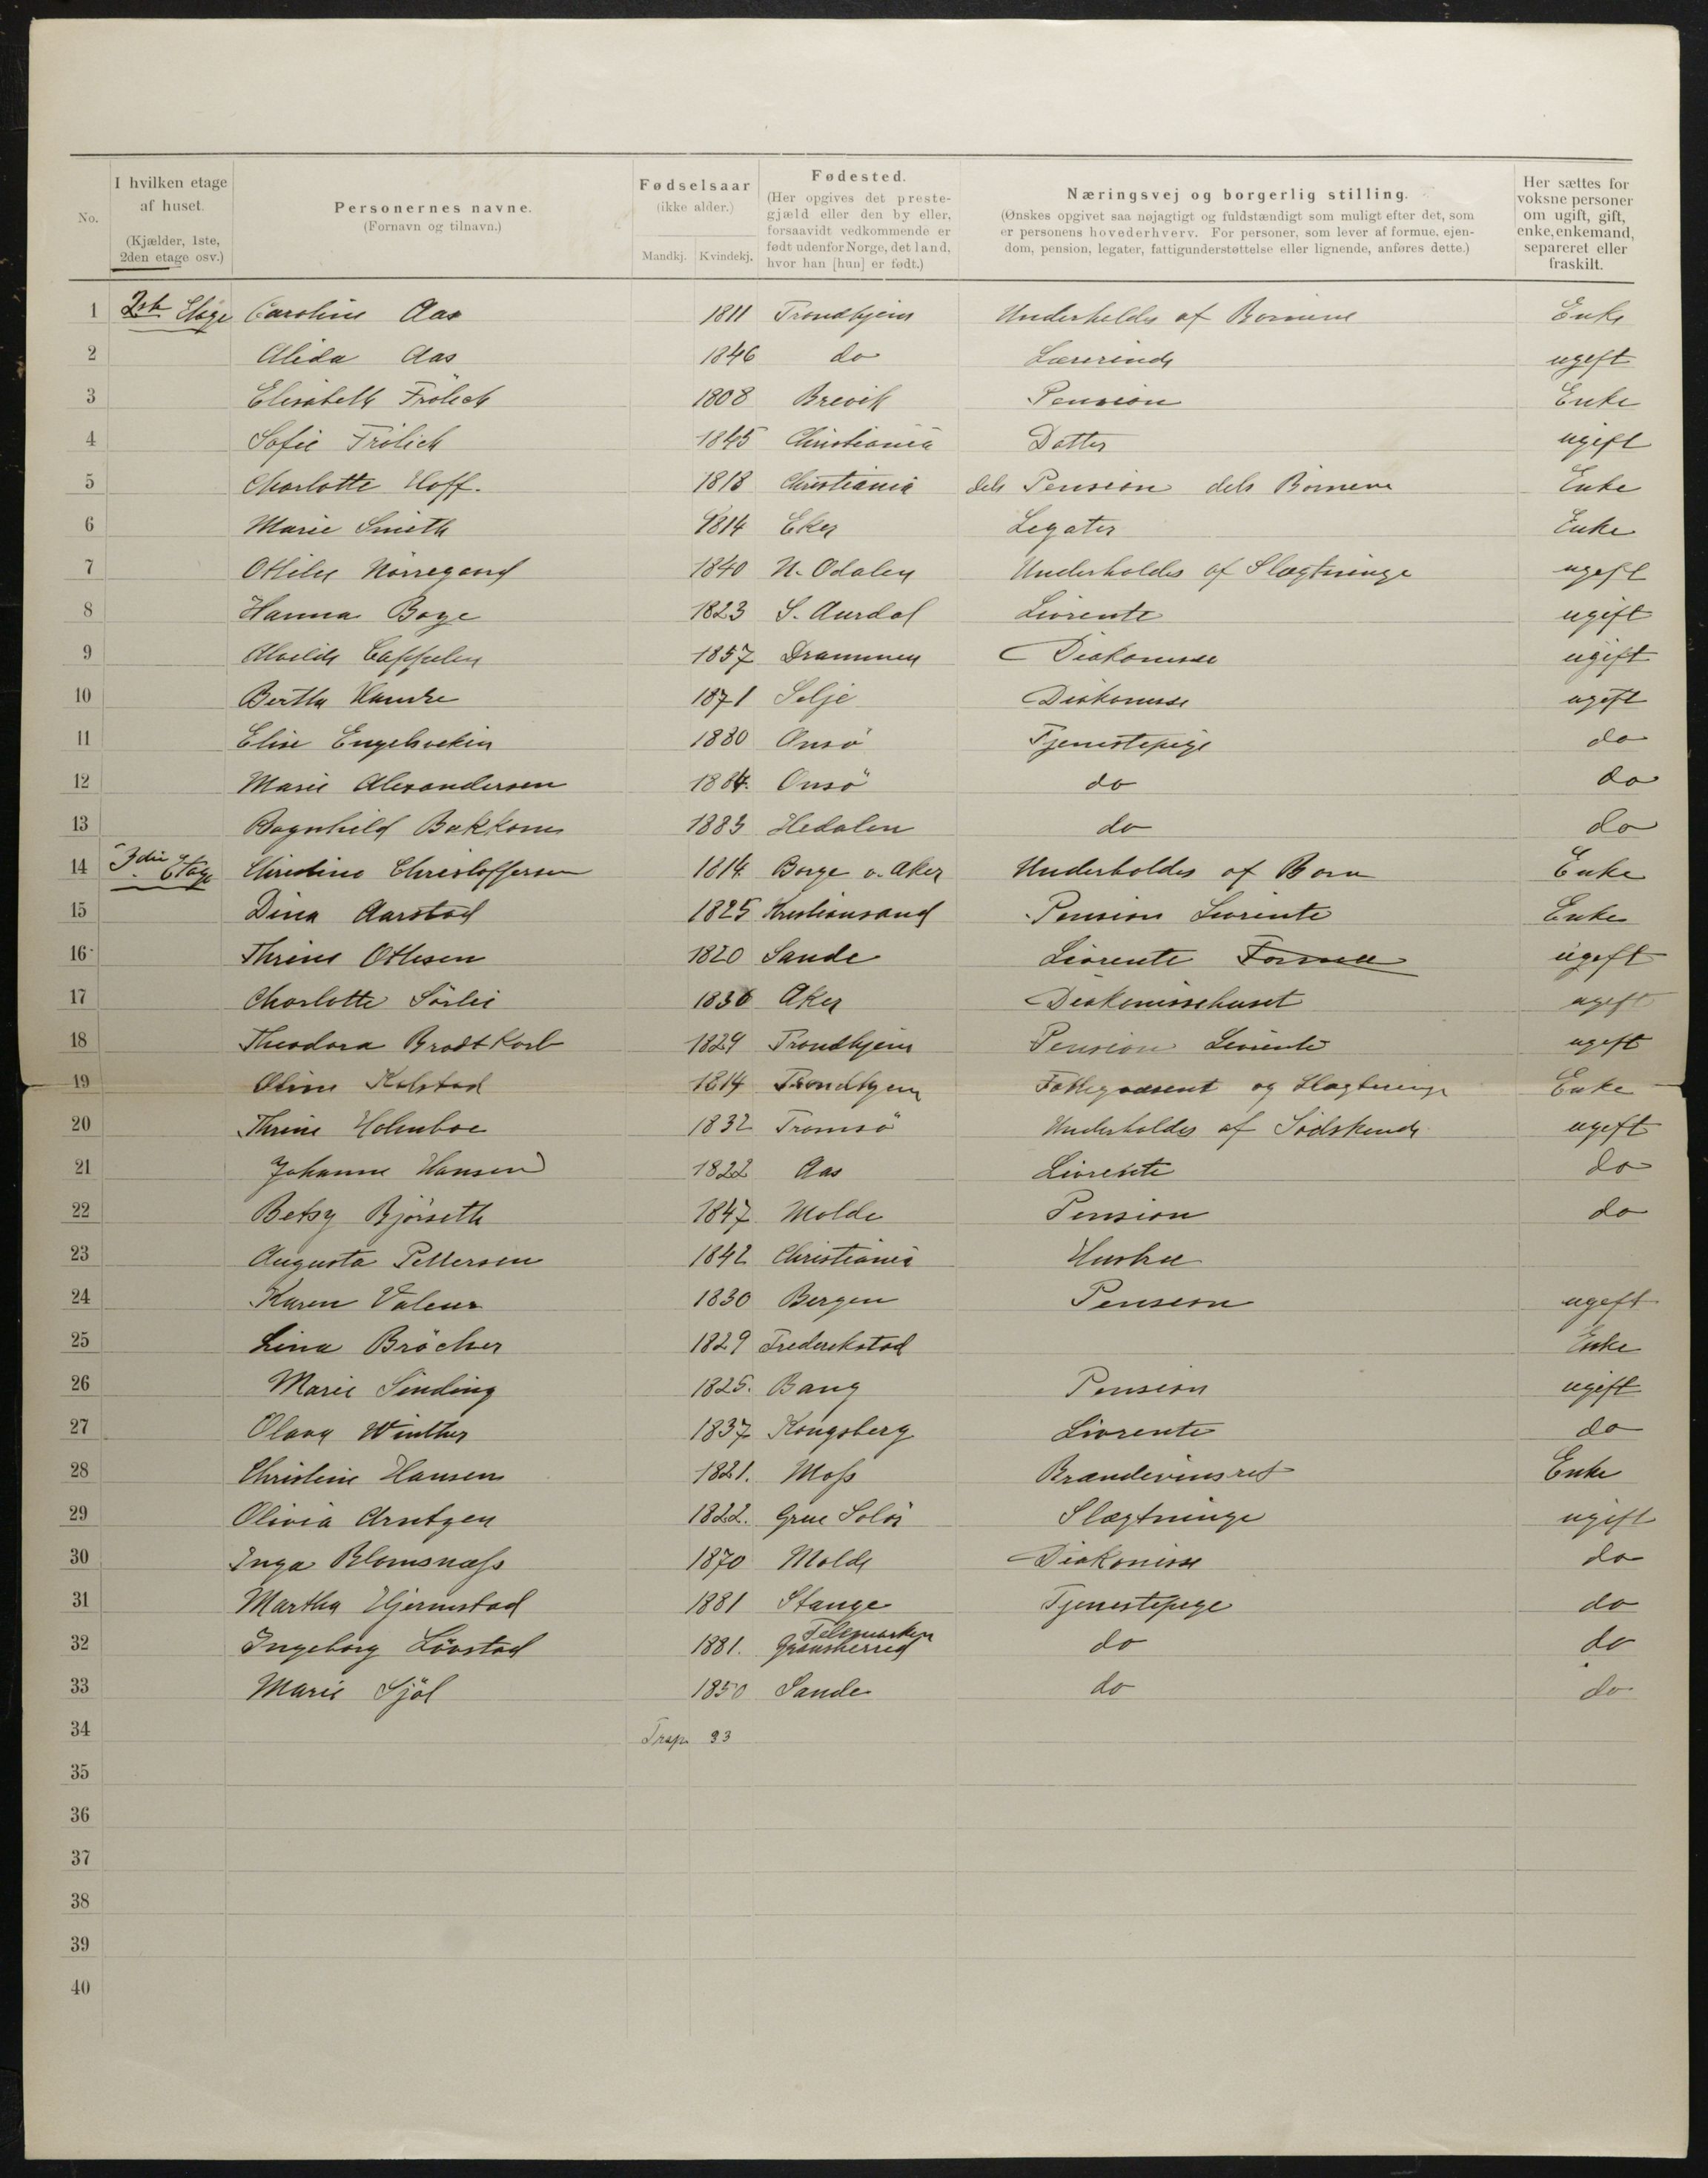 No.
I hvilken etage
af huset.
(Kjælder, 1ste,
2den etage osv.)
Personernes navne.
(Fornavn og tilnavn.)
Fødselsaar
(ikke alder.)
Mandkj. Kvindekj.
Fødested.
(Her opgives det preste-
gjæld eller den by eller,
forsaavidt vedkommende er
født udenfor Norge, det land,
hvor han [hun] er født.)
Næringsvej og borgerlig stilling.
(Ønskes opgivet saa nøjagtigt og fuldstændigt som muligt efter det, som
er personens hovederhverv. For personer, som lever af formue, ejen-
dom, pension, legater, fattigunderstøttelse eller lignende, anføres dette.)
Her sættes for
voksne personer
om ugift, gift,
enke, enkemand,
separeret eller
fraskilt.
1 Etage Caroline Aas 1811 Trondhjem Underholdes af Børnene Enke
2 Alida Aas 1846 do Lærerinde ugift
3 Elisabeth Frölich 1808 Brevik Pension Enke
4 Sofie Frölich 1845 Christiania Datter ugift
5 Charlotte Hoff. 1818 Christiania dels Pension dels Börnene Enke
6 Marie Smith 1814 Eker Legater Enke
7 Othilie Nörregaard 1840 N. Odalen Underholdes af Slægtninge ugift
8 Hanna Boye 1823 S. Aurdal Livrente ugift
9 Alvilde Cappelen 1857 Drammen Diakonisse ugift
10 Bertha Hamre 1871 Selje Diakonisse ugift
11 Elise Engelsviken 1880 Onsö Tjenestepige do
12 Marie Alexandersen 1884. Onsö do do
13 Ragnhild Bakkom 1883 Hedalen do do
14 3die Etage Christine Christoffersen 1814 Borge v. Aker Underholdes af Born Enke
15 Dina Aarstad 1825 Kristiansand Pension Livrente Enke
16 Thrine Othesen 1820 Sande Livrente Formue ugift
17 Charlotte Sörlie 1836 Aker Diakonissehuset ugift
18 Theodora Brodtkorb 1829 Trondhjem Pension Livrente ugift
19 Oline Kolstad 1814 Trondhjem Fattigvæsent og Slægtninge Enke
20 Thrine Holmboe 1832 Tromsö Underholdes af Södskende ugift
21 Johanne Hansen 1822 Aas Livrente do
22 Betsy Björseth 1847 Molde Pension do
23 Augusta Pettersen 1842 Christiania Hustru
24 Karen Valeur 1830 Bergen Pension ugift
25 Lina Bröcher 1829 Frederikstad Enke
26 Marie Sinding 1825. Bang Pension ugift
27 Olava Winther 1837 Kongsberg Livrente do
28 Christine Hansen 1821. Moss Brændevinsret Enke
29 Olivia Arntzen 1822. Grue Solör Slægtninge ugift
30 Inga Blomsnæss 1870 Molde Diakonisse do
31 Martha Hjermstad 1881 Stange Tjenestepige do
32 Ingeborg Lövstad 1881. Telemarken Gransherred do do
33 Marie Sjöl 1850 Sande do do
34 33
35
36
37
38
39
40